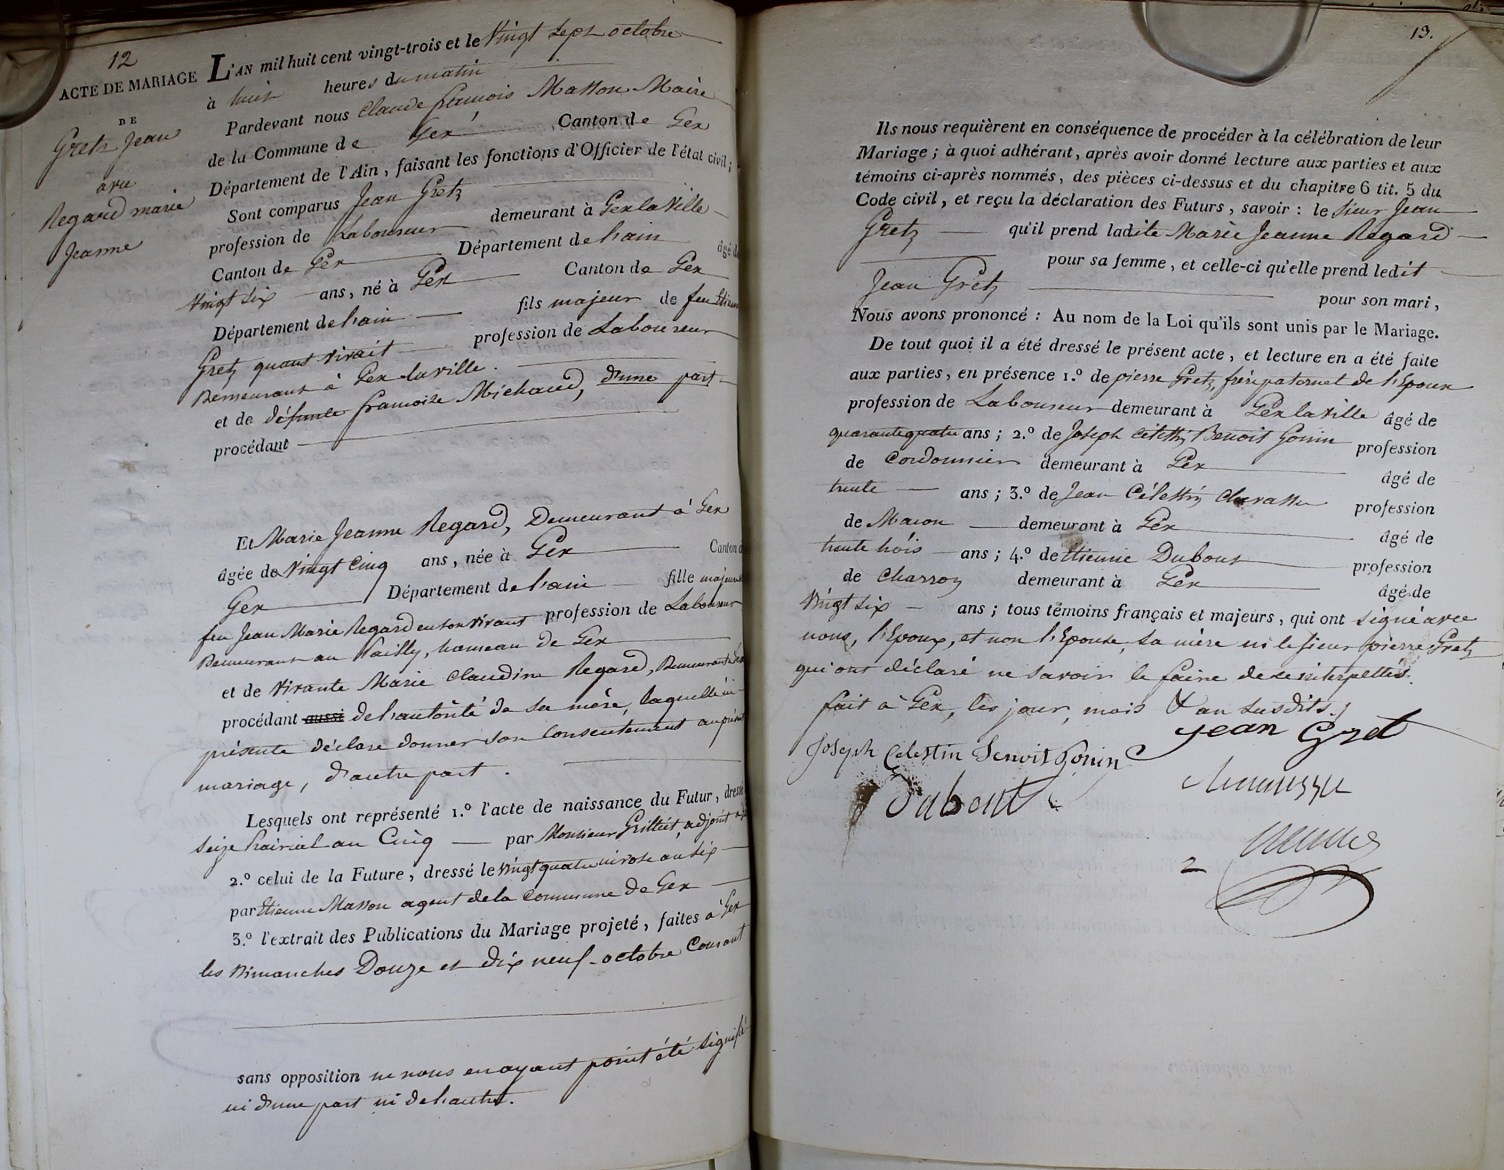 12
ACTE DE MARIAGE
DE
Gretz Jean
avec
Regard marie
Jeanne
L'AN mil huit cent vingt-trois et le Vingt sept octobre
à huit heures du matin
Pardevant nous Claude françois Masson Maire
de la Commune de Gex Canton de Gex
Département de l'Ain, faisant les fonctions d'Officier de l'état civil;
Sont comparus Jean Gretz
profession de Laboureur demeurant à Gex la Ville
Canton de Gex Département de L'ain âgé de
Vingt six ans, né à Gex Canton de Gex
Département de L'ain fils majeur de feu Etienne
Gretz quant vivait profession de Laboureur
Demeurant à Gex la ville.
et de défunte françoise Michaud, d'une part
procédant
Et Marie Jeanne Regard, Demeurant à Gex
âgée de Vingt Cinq ans, née à Gex Canton de
Gex Département de L'ain fille majeure
feu Jean Marie Regard en son vivant profession de Laboureur
Demeurant au hameau de Gex
et de vivante Marie Claudine Regard, Demeurante à Gex
procédant aussi de L'autorité de sa mère, laquelle ici
présente déclare donner son Consentement au présent
mariage, d'autre part.
Lesquels ont représenté 1.º l'acte de naissance du Futur, dressé
seize Prairial an Cinq par Monsieur adjoint
2.º celui de la Future, dressé le vingt quatre nivose an six
par Etienne Masson agent de la Commune de Gex
3.º l'extrait des Publications du Mariage projeté, faites à Gex
les Dimanches Douze et dix neuf octobre Courant
sans opposition ne nous en ayant point été signifié
ni d'une part ni de L'autre.
13.
Ils nous requièrent en conséquence de procéder à la célébration de leur
Mariage; à quoi adhérant, après avoir donné lecture aux parties et aux
témoins ci-après nommés, des pièces ci-dessus et du chapitre 6 tit. 5 du
Code civil, et reçu la déclaration des Futurs, savoir: le sieur Jean
Gretz qu'il prend ladite Marie Jeanne Regard
pour sa femme, et celle-ci qu'elle prend ledit
Jean Gretz pour son mari,
Nous avons prononcé: Au nom de la Loi qu'ils sont unis par le Mariage.
De tout quoi il a été dressé le présent acte, et lecture en a été faite
aux parties, en présence 1.º de pierre Gretz, frère paternel de L'Epoux
profession de Laboureur demeurant à Gex la Ville âgé de
quarante quatre ans; 2.º de Joseph Célestin Benoit Gonin profession
de Cordonnier demeurant à Gex âgé de
trente ans; 3.º de Jean Célestin profession
de Macon demeurant à Gex âgé de
trente trois ans; 4.º de Etienne Dubout profession
de Charron demeurant à Gex âgé de
Vingt six ans; tous témoins français et majeurs, qui ont signé avec
nous, L'Epoux, et non L'Epouse, sa mère ni le sieur pierre Gretz
qui ont déclaré ne savoir le faire de ce interpellés.
fait à Gex, les jour, mois & an susdits.
Jean Gret
Joseph Celestin Benoit Gonin
Dubout